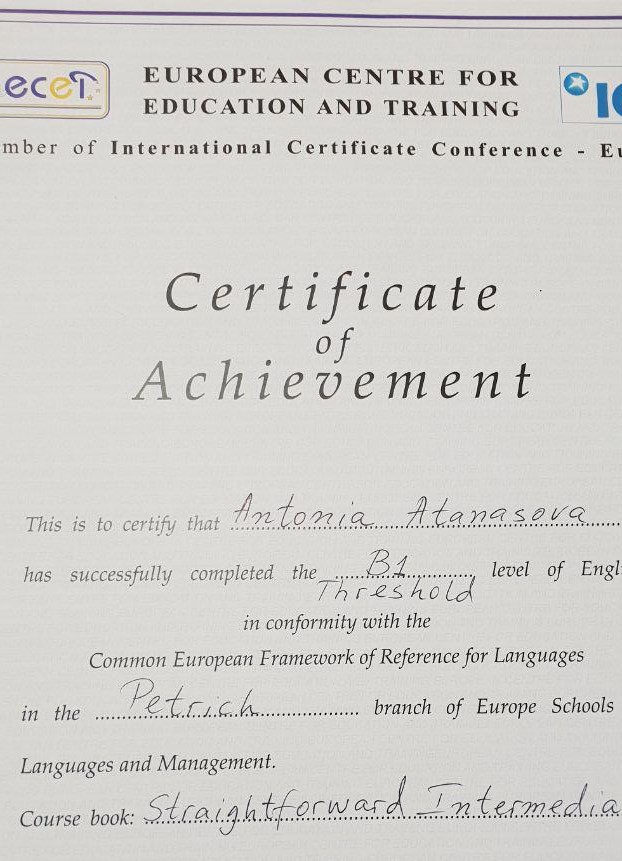 ecet
EUROPEAN CENTRE FOR
EDUCATION AND TRAINING
mber of International Certificate Conference - Eu
Certificate
of
Achievement
This is to certify that Antonia Atanasova
has successfully completed the B1 level of Engl
Threshold
in conformity with the
Common European Framework of Reference for Languages
in the Petrich branch of Europe Schools
Languages and Management.
Course book: Straightforward Intermedia